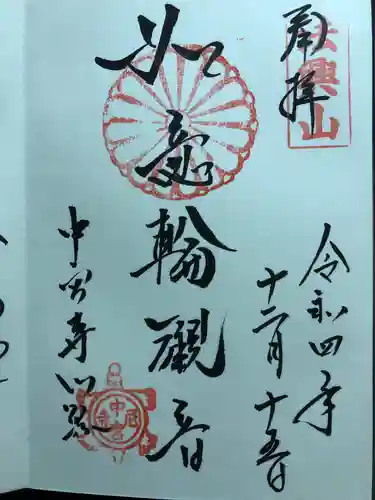 奉拝
法興山
令和四年
十二月十五日
如意輪観音
中宮寺門跡